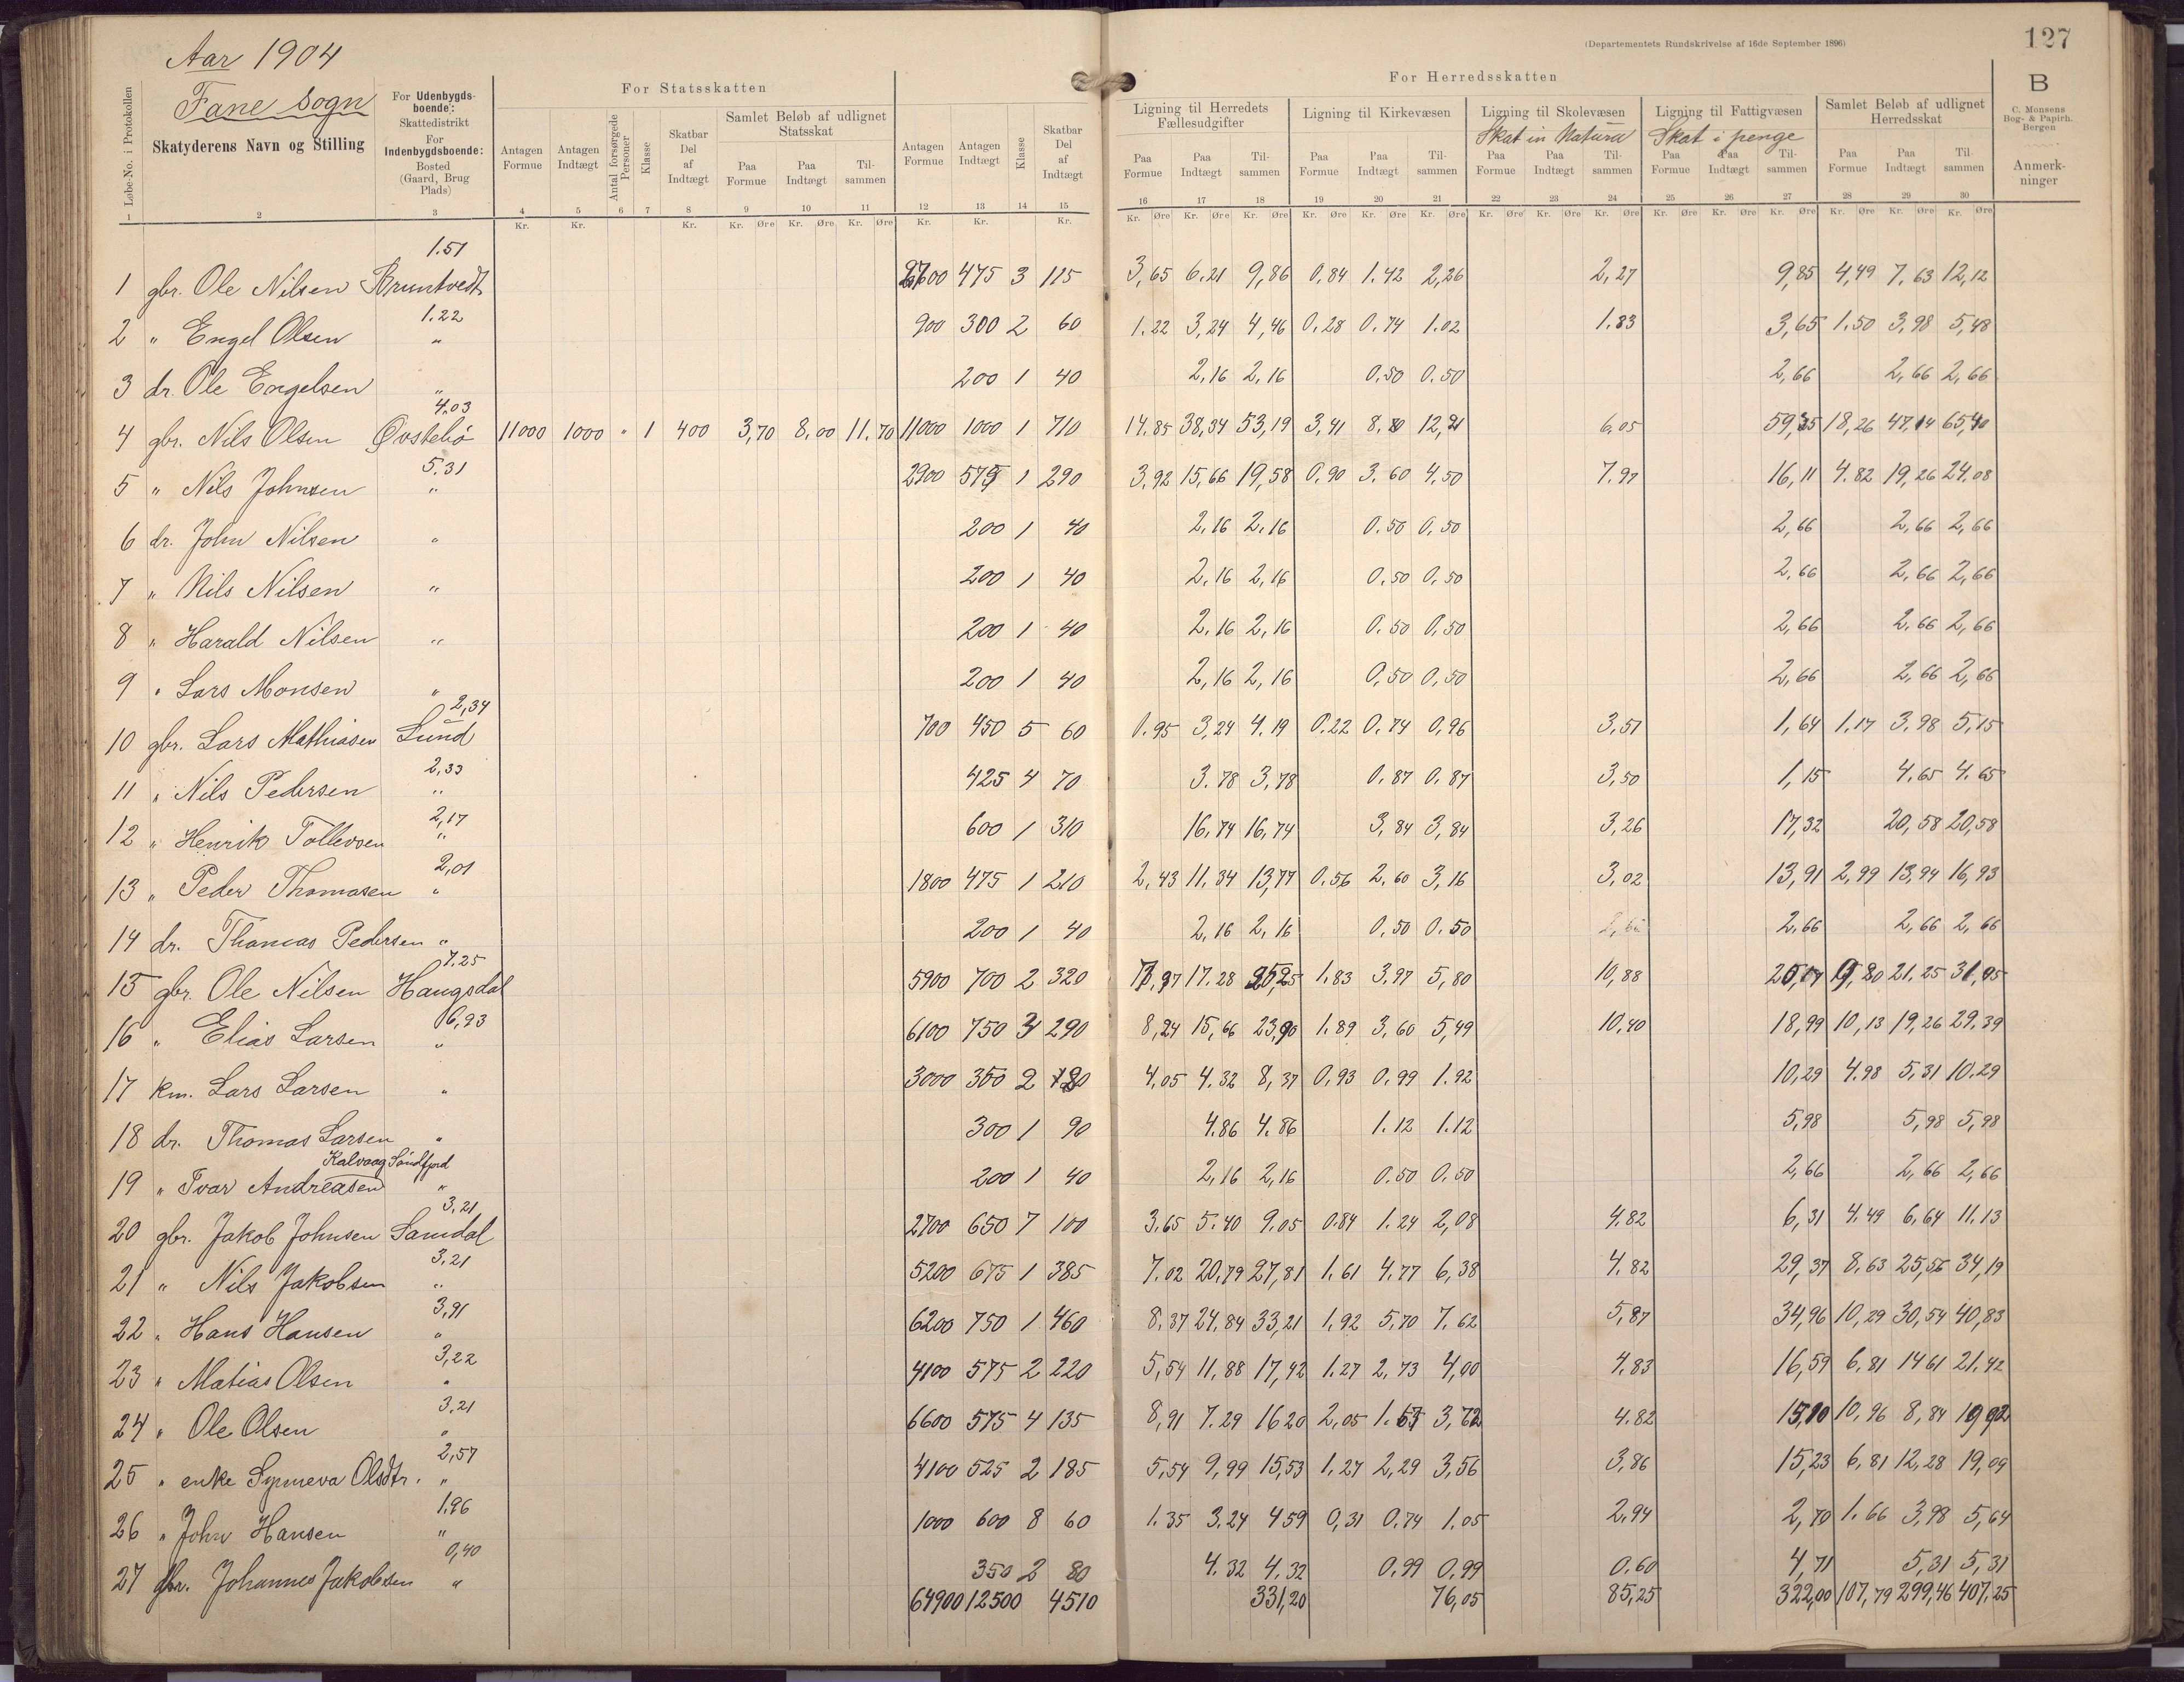 Aar 1904
127
(Departementets Rundskrivelse af 16de September 1896)
Fane Sogn
For Statsskatten
For Herredsskatten
B
C. Monsens Bog- & Papirh. Bergen
Løbe-No. i Protokollen | Skatyderens Navn og Stilling | For Udenbygdsboende: Skattedistrikt For Indenbygdsboende: Bosted (Gaard, Brug Plads) | Antagen Formue | Antagen Indtægt | Antal forsørgede Personer | Klasse | Skatbar Del af Indtægt | Samlet Beløb af udlignet Statsskat | Antagen Formue | Antagen Indtægt | Klasse | Skatbar Del af Indtægt | Ligning til Herredets Fællesudgifter | Ligning til Kirkevæsen | Ligning til Skolevæsen | Ligning til Fattigvæsen | Samlet Beløb af udlignet Herredsskat | Anmerkninger
Skat in Natura | Skat i penge
Paa Formue | Paa Indtægt | Tilsammen | Paa Formue | Paa Indtægt | Tilsammen | Paa Formue | Paa Indtægt | Tilsammen | Paa Formue | Paa Indtægt | Tilsammen | Paa Formue | Paa Indtægt | Tilsammen | Paa Formue | Paa Indtægt | Tilsammen
1 2 3 4 5 6 7 8 9 10 11 12 13 14 15 16 17 18 19 20 21 22 23 24 25 26 27 28 29 30
Kr. Kr. Kr. Kr. Øre Kr. Øre Kr. Øre Kr. Kr. Kr. Kr. Øre Kr. Øre Kr. Øre Kr. Øre Kr. Øre Kr. Øre Kr. Øre Kr. Øre Kr. Øre Kr. Øre Kr. Øre Kr. Øre Kr. Øre Kr. Øre Kr. Øre
1.51
1 gbr. Ole Nilsen Bruntvedt 2700 475 3 115 3,65 6.21 9,86 0,84 1.42 2,26 2,27 9,85 4,49 7,63 12,12
1.22
2 " Engel Olsen " 900 300 2 60 1.22 3,24 4,46 0.28 0.74 1.02 1.83 3,65 1.50 3,98 5,48
3 dr. Ole Engelsen " 200 1 40 2,16 2,16 0.50 0.50 2,66 2,66 2,66
4.03
4 gbr. Nils Olsen Øvstebø 11000 1000 " 1 400 3,70 8,00 11.70 11000 1000 1 710 14.85 38,34 53,19 3,41 8.80 12,21 6,05 59,35 18,26 47,14 65,40
5.31
5 " Nils Johnsen " 2900 575 1 290 3,92 15,66 19,58 0,90 3.60 4,50 7.97 16,11 4.82 19,26 24.08
6 dr. John Nilsen " 200 1 40 2,16 2.16 0.50 0,50 2,66 2,66 2,66
7 " Nils Nilsen " 200 1 40 2,16 2,16 0,50 0,50 2,66 2,66 2,66
8 " Harald Nilsen " 200 1 40 2,16 2,16 0.50 0,50 2,66 2.66 2,66
9 " Lars Monsen " 200 1 40 2,16 2,16 0,50 0,50 2,66 2,66 2,66
2,34
10 gbr. Lars Mathiasen Lund 700 450 5 60 0.95 3,24 4.19 0.22 0.74 0,96 3,51 1,64 1.17 3.98 5,15
2,33
11 " Nils Pedersen " 425 4 70 3.78 3,78 0.87 0.87 3,50 1,15 4.65 4.65
2,17
12 " Henrik Tollevsen " 600 1 310 16,74 16,74 3,84 3,84 3,26 17,32 20,58 20,58
2,01
13 " Peder Thomasen " 1800 475 1 210 2,43 11.34 13,77 0.56 2,60 3,16 3,02 13,91 2,99 13,94 16,93
14 dr. Thomas Pedersen " 200 1 40 2,16 2,16 0,50 0.50 2,66 2,66 2,66
7.25
15 gbr. Ole Nilsen Haugsdal 5900 700 2 320 7,97 17.28 25,25 1.83 3.97 5,80 10,88 20,17 9,80 21.25 31,05
6,93
16 " Elias Larsen " 6100 750 3 290 8,24 15,66 23,90 1.89 3,60 5,49 10,40 18,99 10,13 19,26 29,39
17 km. Lars Larsen " 3000 350 2 80 4,05 4.32 8,37 0,93 0.99 1.92 10,29 4.98 5,31 10.29
18 dr. Thomas Larsen " 300 1 90 4.86 4.86 1.12 1.12 5,98 5,98 5,98
Kalvaag Søndfjord
19 " Ivar Andreasen " 200 1 40 2,16 2,16 0.50 0.50 2,66 2,66 2,66
3,21
20 gbr. Jakob Johnsen Samdal 2700 650 7 100 3.65 5.40 9.05 0.84 1.24 2,08 4.82 6,31 4.49 6,64 11.13
3,21
21 " Nils Jakobsen " 5200 675 1 385 7.02 20,79 27,81 1.61 4.77 6,38 4.82 29,37 8.63 25,56 34,19
3,91
22 " Hans Hansen " 6200 750 1 460 8,37 24,84 33,21 1,92 5,70 7.62 5,87 34,96 10,29 30,54 40,83
3,22
23 " Matias Olsen " 4100 575 2 220 5,54 11,88 17,42 1.27 2,73 4,00 4,83 16,59 6,81 14 61 21.42
3.21
24 " Ole Olsen " 6600 575 4 135 8,91 7.29 16 20 2,05 1.67 3,72 4.82 15,10 10,96 8,84 19 92
2,57
25 " enke Synneva Olsdtr. " 4100 525 2 185 5,54 9,99 15,53 1.27 2,29 3,56 3,86 15,23 6,81 12,28 19,09
1.96
26 " John Hansen " 1000 600 8 60 1.35 3,24 4 59 0,31 0.74 1.05 2,94 2,70 1.66 3,98 5,64
0,40
27 gbr. Johannes Jakobsen " 350 2 80 4.32 4.32 0.99 0.99 0.60 4,71 5,31 5,31
64900 12500 4510 331,20 76,05 85,25 322,00 107,79 299,46 407,25